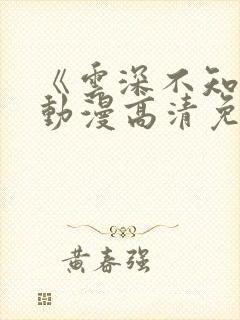 《雲深不知
動漫高清免
黄春强